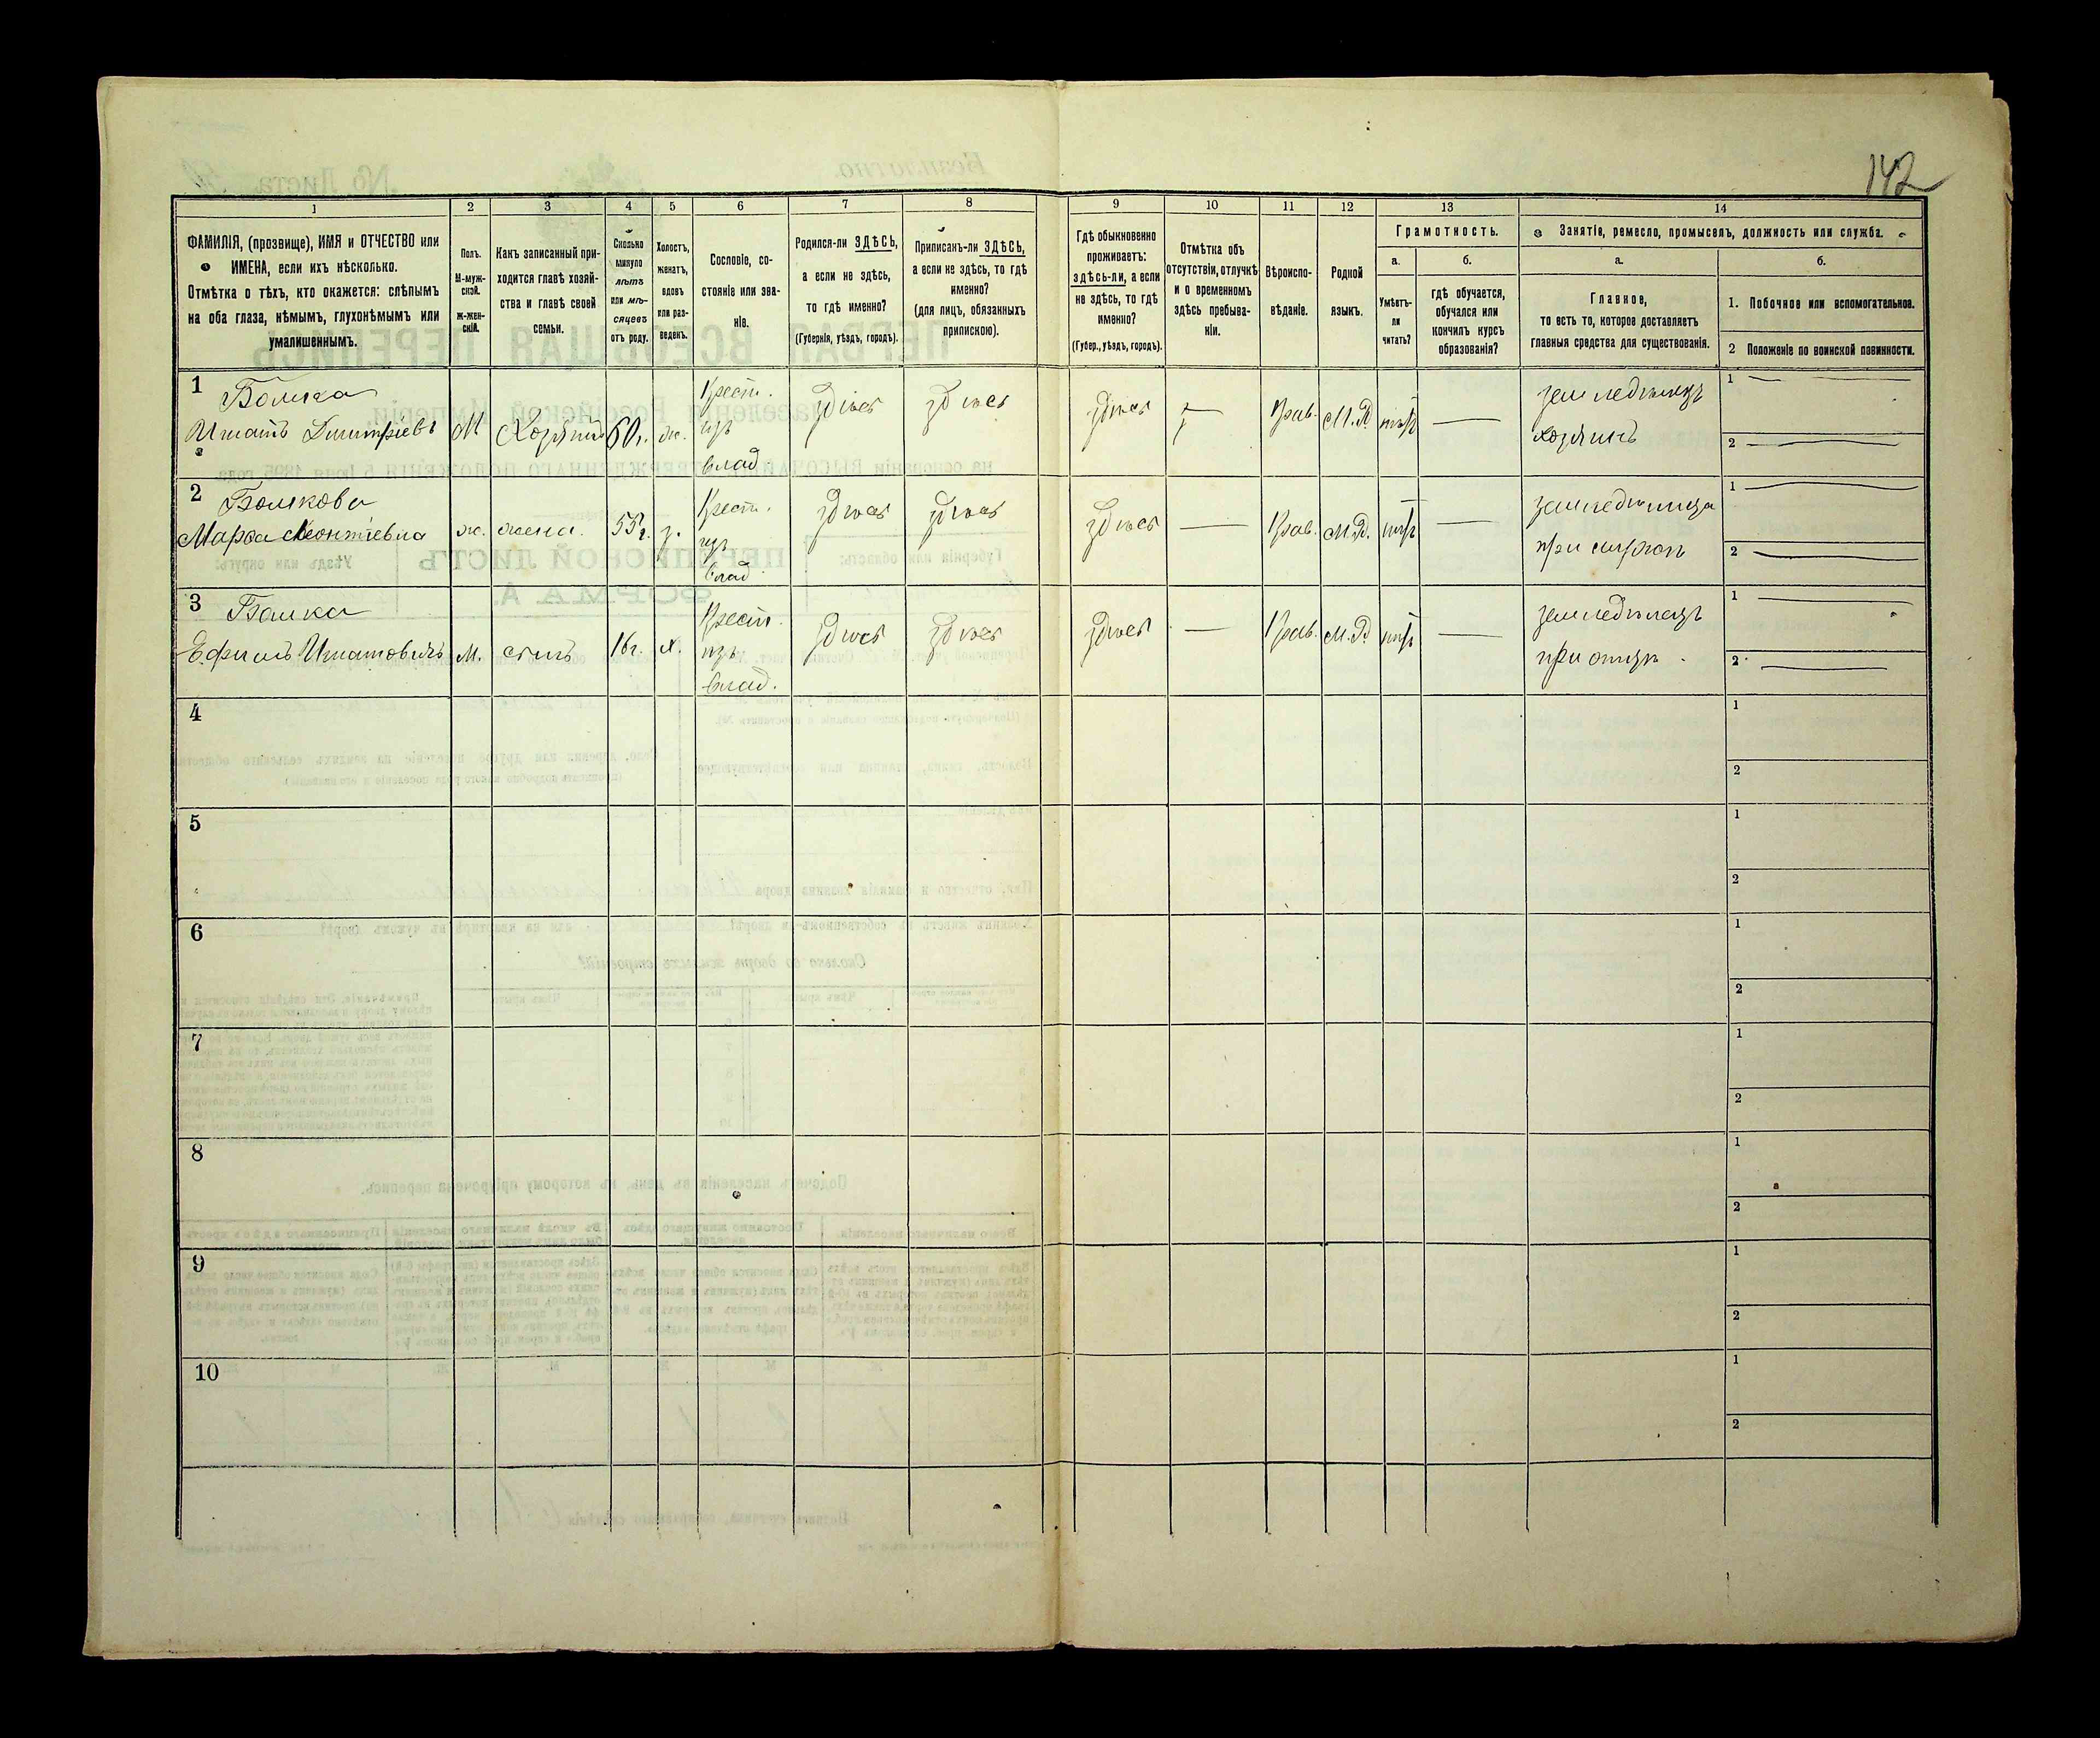 142
1 2 3 4 5 6 7 8 9 10 11 12 13 14
ФАМИЛІЯ, (прозвище), ИМЯ и ОТЧЕСТВО или
ИМЕНА, если ихъ нѣсколько.
Отмѣтка о тѣхъ, кто окажется: слѣпымъ
на оба глаза, нѣмымъ, глухонѣмымъ или
умалишеннымъ.
Полъ.
М-муж-
ской.
Ж-жен-
скій.
Какъ записанный при-
ходится главѣ хозяй-
ства и главѣ своей
семьи.
Сколько
минуло
лѣтъ
или мѣ-
сяцевъ
отъ роду.
Холостъ,
женатъ,
вдовъ
или раз-
веденъ.
Сословіе, со-
стояніе или зва-
ніе.
Родился-ли ЗДѢСЬ,
а если не здѣсь,
то гдѣ именно?
(Губернія, уѣздъ, городъ).
Приписанъ-ли ЗДѢСЬ,
а если не здѣсь, то гдѣ
именно?
(для лицъ, обязанныхъ
припискою).
Гдѣ обыкновенно
проживаетъ:
здѣсь-ли, а если
не здѣсь, то гдѣ
именно?
(Губер., уѣздъ, городъ).
Отмѣтка объ
отсутствіи, отлучкѣ
и о временномъ
здѣсь пребыва-
ніи.
Вѣроиспо-
вѣданіе.
Родной
языкъ.
Грамотность.
а.
Умѣетъ-
ли
читать?
б.
гдѣ обучается,
обучался или
кончилъ курсъ
образованія?
Занятіе, ремесло, промыселъ, должность или служба.
а.
Главное,
то есть то, которое доставляетъ
главныя средства для существованія.
б.
1. Побочное или вспомогательное.
2 Положеніе по воинской повинности.
1
Игнатъ Дмитріевъ М Хозяинъ 60 г. ж. Крест. изъ влад. здѣсь здѣсь здѣсь — Прав. М.Р. нѣтъ — земледѣлецъ
хозяинъ
1 —
2 —
2
Марфа Леонтіевна ж. жена. 55 г. з. Крест. изъ влад. здѣсь здѣсь здѣсь — Прав. М.Р. нѣтъ —
при
1 —
2 —
3
Ефимъ Игнатовичъ М. сынъ 16 г. х. Крест. изъ влад. здѣсь здѣсь здѣсь — Прав. М.Р. нѣтъ — земледѣлецъ
при отцѣ.
1 —
2 —
4 1
2
5 1
2
6 1
2
7 1
2
8 1
2
9 1
2
10 1
2